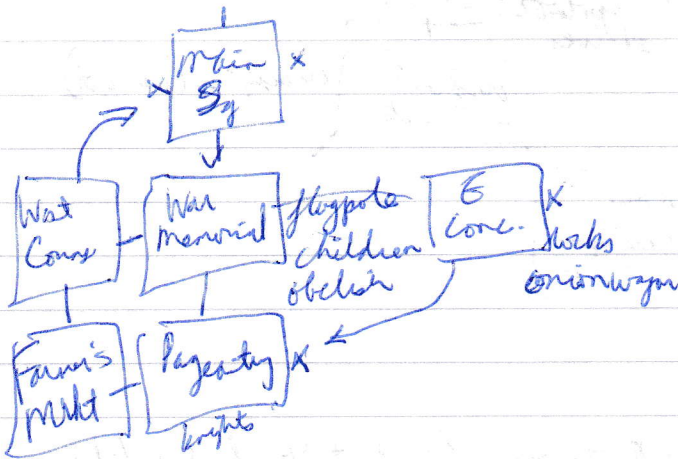 Main
Sq
x
x
West
Conc
War
Memorial
flagpole
children
obelisk
E
Conc.
x
stocks
onion wagon
Farmer's
Mrkt
Pageantry
x
knights